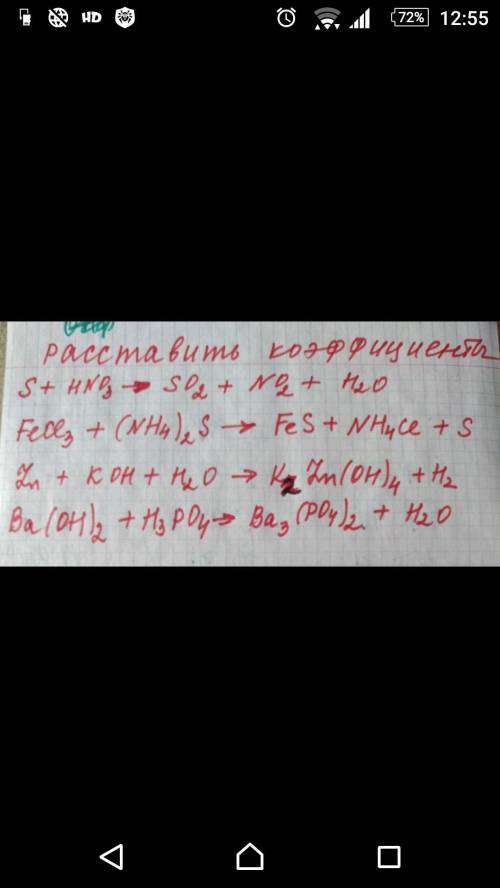 HD 72% 12:55
Расставить коэффициенты
S + HNO3 → SO2 + NO2 + H2O
FeCl3 + (NH4)2S → FeS + NH4Cl + S
Zn + KOH + H2O → K2Zn(OH)4 + H2
Ba(OH)2 + H3PO4 → Ba3(PO4)2 + H2O